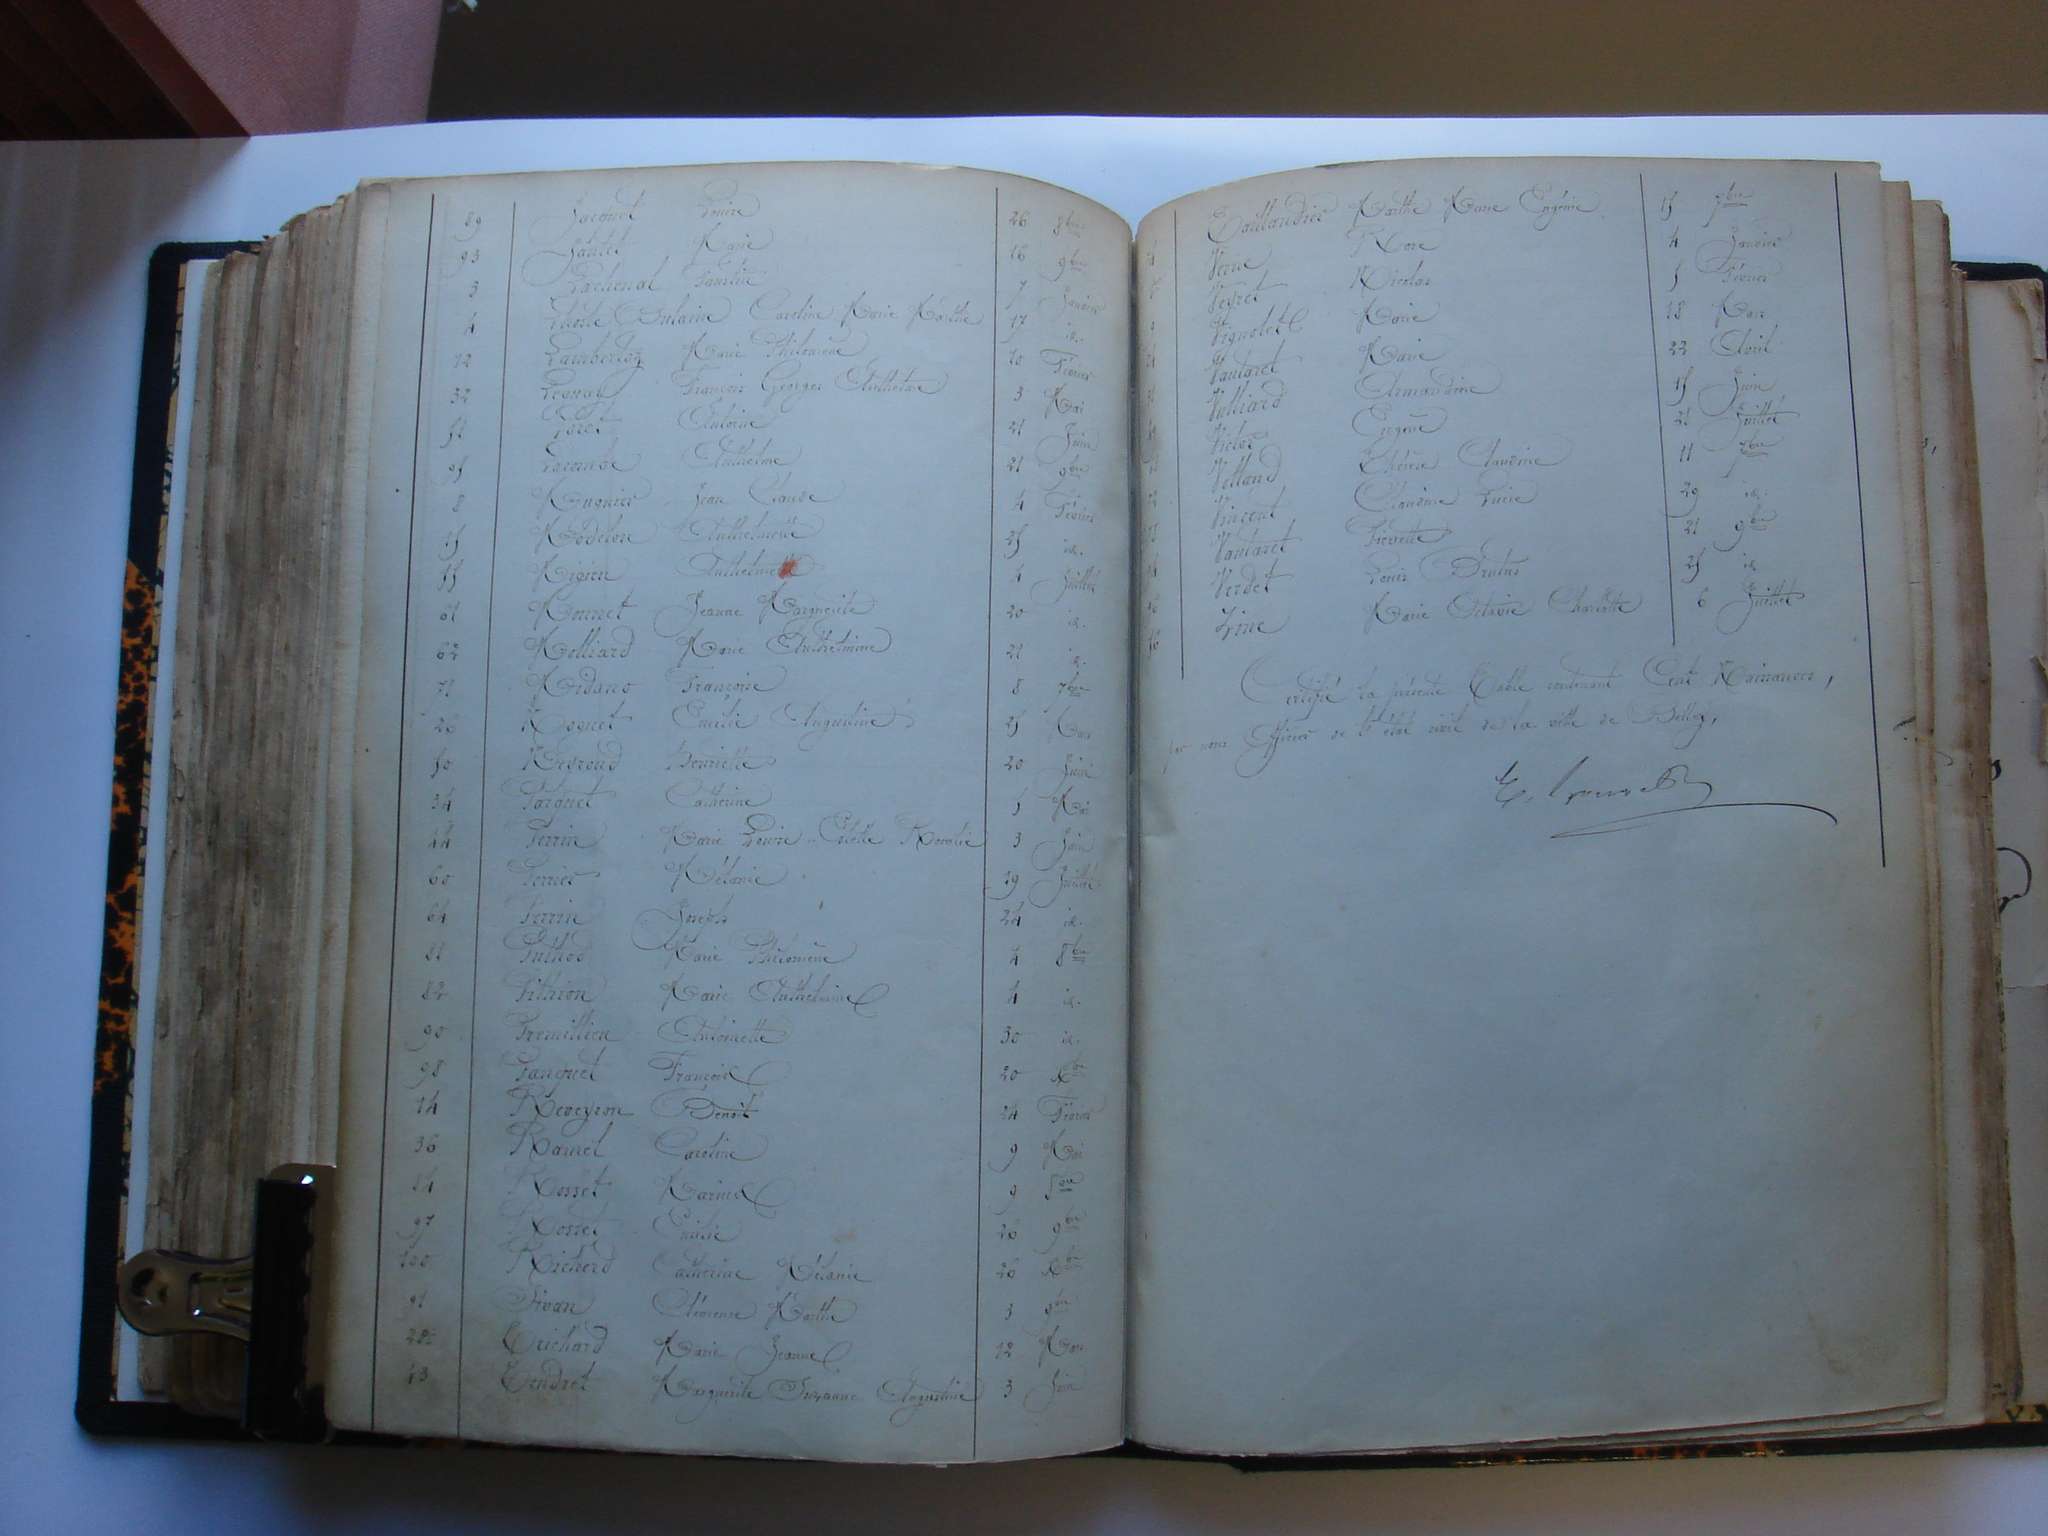 89 Jacquet Louise 26 8bre
93 Jautet Marie 16 9bre
3 Lachenal Faustin 7 Janvier
4 Caroline Marie Marthe 17 id.
12 Lambertoz Marie Philomène 10 Février
32 François Georges Anthelme 3 Mai
51 Antoine 21 Juin
95 Lacombe Anthelme 21 9bre
8 Mugnier Jean Claude 4 Février
15 Anthelmette 25 id.
55 Migien Anthelmette 4 Juillet
61 Monnet Jeanne Marguerite 20 id.
62 Molliard Marie Anthelmine 21 id.
71 Mordano Françoise 8 7bre
26 Moquet Emilie Augustine 25 Mars
50 Neyroud Henriette 20 Juin
34 Parquet Catherine 5 Mai
44 Perrin Marie Louise Rosalie 3 Juin
60 Perrier Mélanie 19 Juillet
64 Perrin Joseph 24 id.
81 Puthod Marie Philomène 4 8bre
82 Pithion Marie Anthelmine 4 id.
90 Premillieu Antoinette 30 id.
98 Panquet François 20 Xbre
14 Reveyron Benoît 24 Février
36 Ramel Caroline 9 Mai
84 Rosset Marius 9 8bre
97 Rosset Emilie 26 9bre
100 Richerd Catherine Mélanie 26 Xbre
91 Sivan Clémence Marthe 3 9bre
22 Trichard Marie Jeanne 12 Mars
43 Tendret Marguerite Suzanne Augustine 3 Juin
Taillandier Marthe Marie Eugénie 15 7bre
Verne Rose 4 Janvier
Veyret Nicolas 5 Février
Vignolet Marie 18 Mars
Vautaret Marie 22 Avril
Vulliard Armandine 15 Juin
Victor Eugène 21 Juillet
Velland Thérèse Claudine 11 7bre
Vincent Claudine Lucie 29 id.
Vautaret Pierrette 21 9bre
Verdet Louis Brutus 25 id.
Zine Marie Octavie Charlotte 6 Juillet
Certifié la présente Table contenant Cent Naissances,
par nous Officier de l'état civil de la ville de Belley,